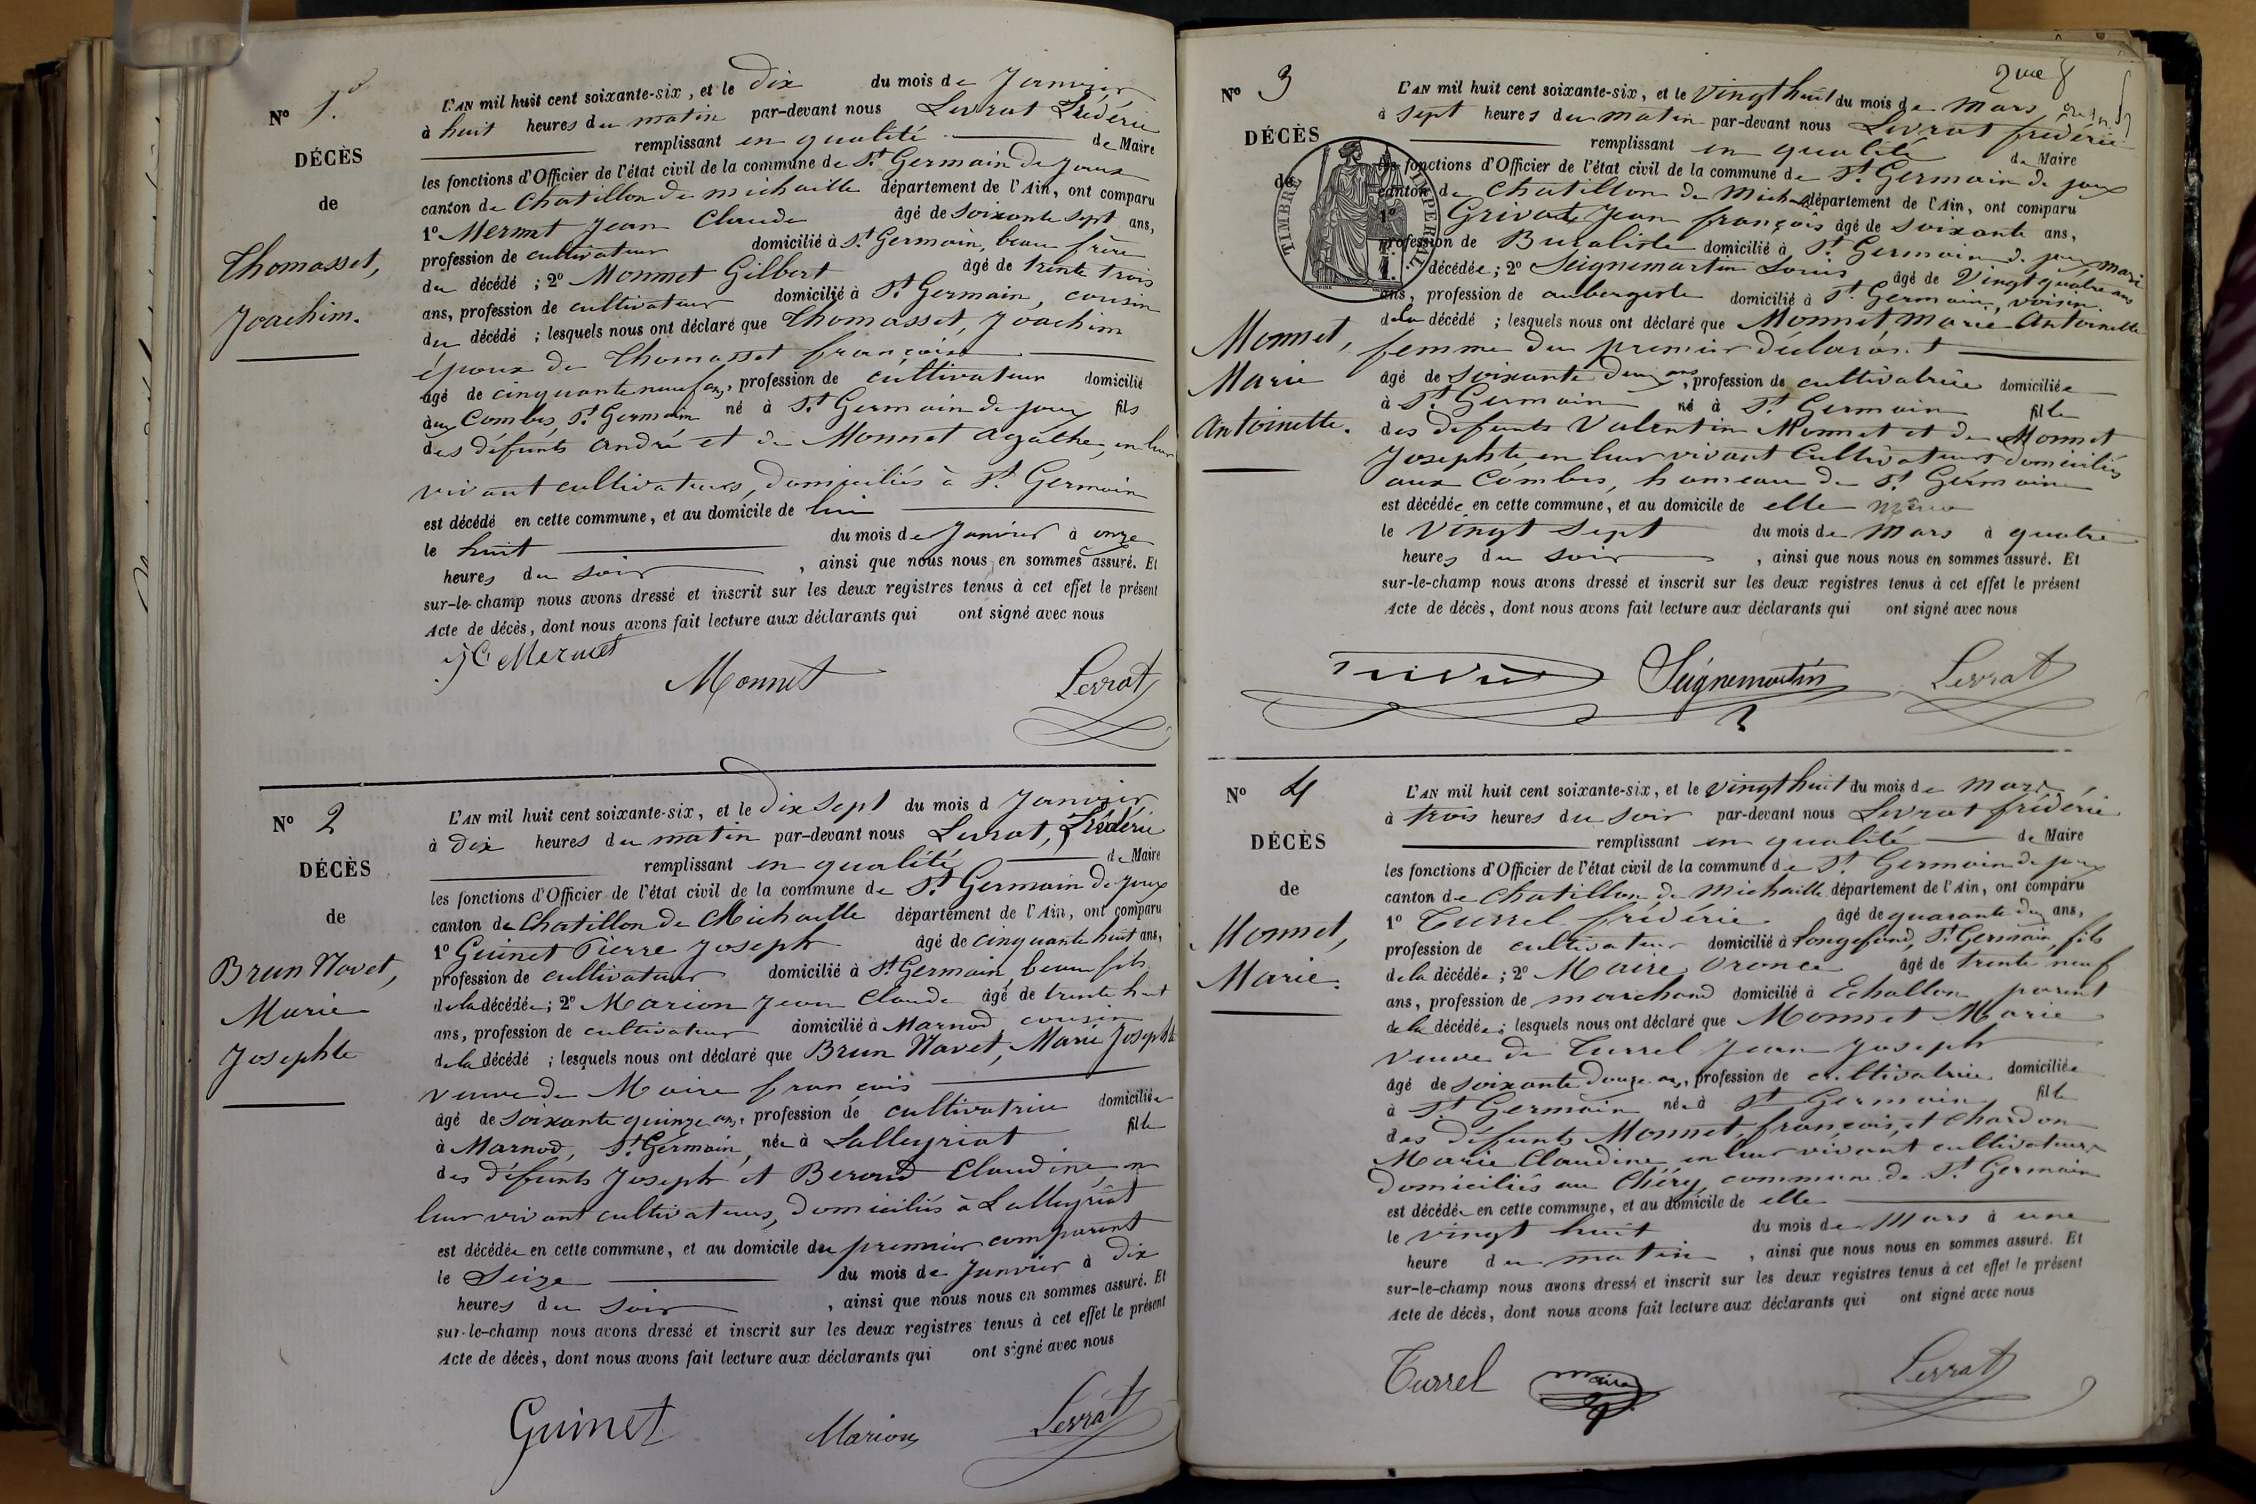 N° 1.
DÉCÈS
de
Thomasset,
Joachim.
L'AN mil huit cent soixante-six, et le dix du mois de Janvier
à huit heures du matin par-devant nous Levrat Frédéric
remplissant en qualité de Maire
les fonctions d'Officier de l'état civil de la commune de St Germain de Joux
canton de Chatillon de michaille département de l'Ain, ont comparu
1° Mermet Jean Claude âgé de soixante sept ans,
profession de cultivateur domicilié à St Germain, beau frère
du décédé ; 2° Monnet Gilbert âgé de trente trois
ans, profession de cultivateur domicilié à St Germain, cousin
du décédé ; lesquels nous ont déclaré que Thomasset, Joachim
époux de Thomasset françoise
âgé de cinquante neuf ans, profession de cultivateur domicilié
aux Combes, St Germain né à St Germain de joux fils
des défunts andré et de Monnet agathe, en leur
vivant cultivateurs, domiciliés à St Germain
est décédé en cette commune, et au domicile de lui
le huit du mois de Janvier à onze
heures du soir, ainsi que nous nous en sommes assuré. Et
sur-le-champ nous avons dressé et inscrit sur les deux registres tenus à cet effet le présent
Acte de décès, dont nous avons fait lecture aux déclarants qui ont signé avec nous
JC Mermet Monnet Levrat
N° 2
DÉCÈS
de
Brun Navet,
Marie
Josephte
L'AN mil huit cent soixante-six, et le dix sept du mois d Janvier
à dix heures du matin par-devant nous Levrat, Frédéric
remplissant en qualité de Maire
les fonctions d'Officier de l'état civil de la commune de St Germain de Joux
canton de Chatillon de Michaille département de l'Ain, ont comparu
1° Guinet Pierre Joseph âgé de cinquante huit ans,
profession de cultivateur domicilié à St Germain, beau fils
de la décédée ; 2° Marion Jean Claude âgé de trente huit
ans, profession de cultivateur domicilié à Marnod cousin
de la décédé ; lesquels nous ont déclaré que Brun Navet, Marie Josephte
veuve de Maire françois
âgé de soixante quinze ans, profession de cultivatrice domiciliée
à Marnod, St Germain, née à Lalleyriat fille
des défunts Joseph et Beroud Claudine en
leur vivant cultivateurs, domiciliés à Lalleyriat
est décédée en cette commune, et au domicile du premier comparant
le Seize du mois de Janvier à dix
heures du soir, ainsi que nous nous en sommes assuré. Et
sur-le-champ nous avons dressé et inscrit sur les deux registres tenus à cet effet le présent
Acte de décès, dont nous avons fait lecture aux déclarants qui ont signé avec nous
Guinet Marion Levrat
2me
N° 3
DÉCÈS
de
Monnet,
Marie
antoinette.
TIMBRE IMPÉRIAL
L'AN mil huit cent soixante-six, et le Vingt huit du mois de Mars
à sept heures du matin par-devant nous Levrat frédéric
remplissant en qualité de Maire
les fonctions d'Officier de l'état civil de la commune de St Germain de joux
canton de Chatillon de Mich département de l'Ain, ont comparu
1° Jean françois âgé de soixante ans,
profession de Buraliste domicilié à St Germain de joux mari
décédée ; 2° Seignemartin Louis âgé de Vingt quatre ans
ans, profession de aubergiste domicilié à St Germain, voisin
de la décédé ; lesquels nous ont déclaré que Monnet Marie Antoinette
femme du premier déclarant
âgé de soixante deux ans, profession de cultivatrice domiciliée
à St Germain né à St Germain fille
des défunts Valentin Monnet et de Monnet
Josephte en leur vivant Cultivateurs domiciliés
aux Combes, hameau de St Germain
est décédée en cette commune, et au domicile de elle même
le Vingt sept du mois de Mars à quatre
heures du soir, ainsi que nous nous en sommes assuré. Et
sur-le-champ nous avons dressé et inscrit sur les deux registres tenus à cet effet le présent
Acte de décès, dont nous avons fait lecture aux déclarants qui ont signé avec nous
Seignemartin Levrat
N° 4
DÉCÈS
de
Monnet,
Marie.
L'AN mil huit cent soixante-six, et le Vingt huit du mois de Mars
à trois heures du soir par-devant nous Levrat frédéric
remplissant en qualité de Maire
les fonctions d'Officier de l'état civil de la commune de St Germain de joux
canton de Chatillon de Michaille département de l'Ain, ont comparu
1° Turrel frédéric âgé de quarante deux ans,
profession de cultivateur domicilié à Longefand, St Germain, fils
de la décédée ; 2° Maire Oronce âgé de trente neuf
ans, profession de marchand domicilié à Echallon parent
de la décédée ; lesquels nous ont déclaré que Monnet Marie
veuve de Turrel Jean Joseph
âgé de soixante douze ans, profession de cultivatrice domiciliée
à St Germain née à St Germain fille
des défunts Monnet, françois, et Chardon
Marie Claudine en leur vivant cultivateurs
domiciliés au Chéry commune de St Germain
est décédée en cette commune, et au domicile de elle
le vingt huit du mois de Mars à une
heure du matin, ainsi que nous nous en sommes assuré. Et
sur-le-champ nous avons dressé et inscrit sur les deux registres tenus à cet effet le présent
Acte de décès, dont nous avons fait lecture aux déclarants qui ont signé avec nous
Turrel maire Levrat